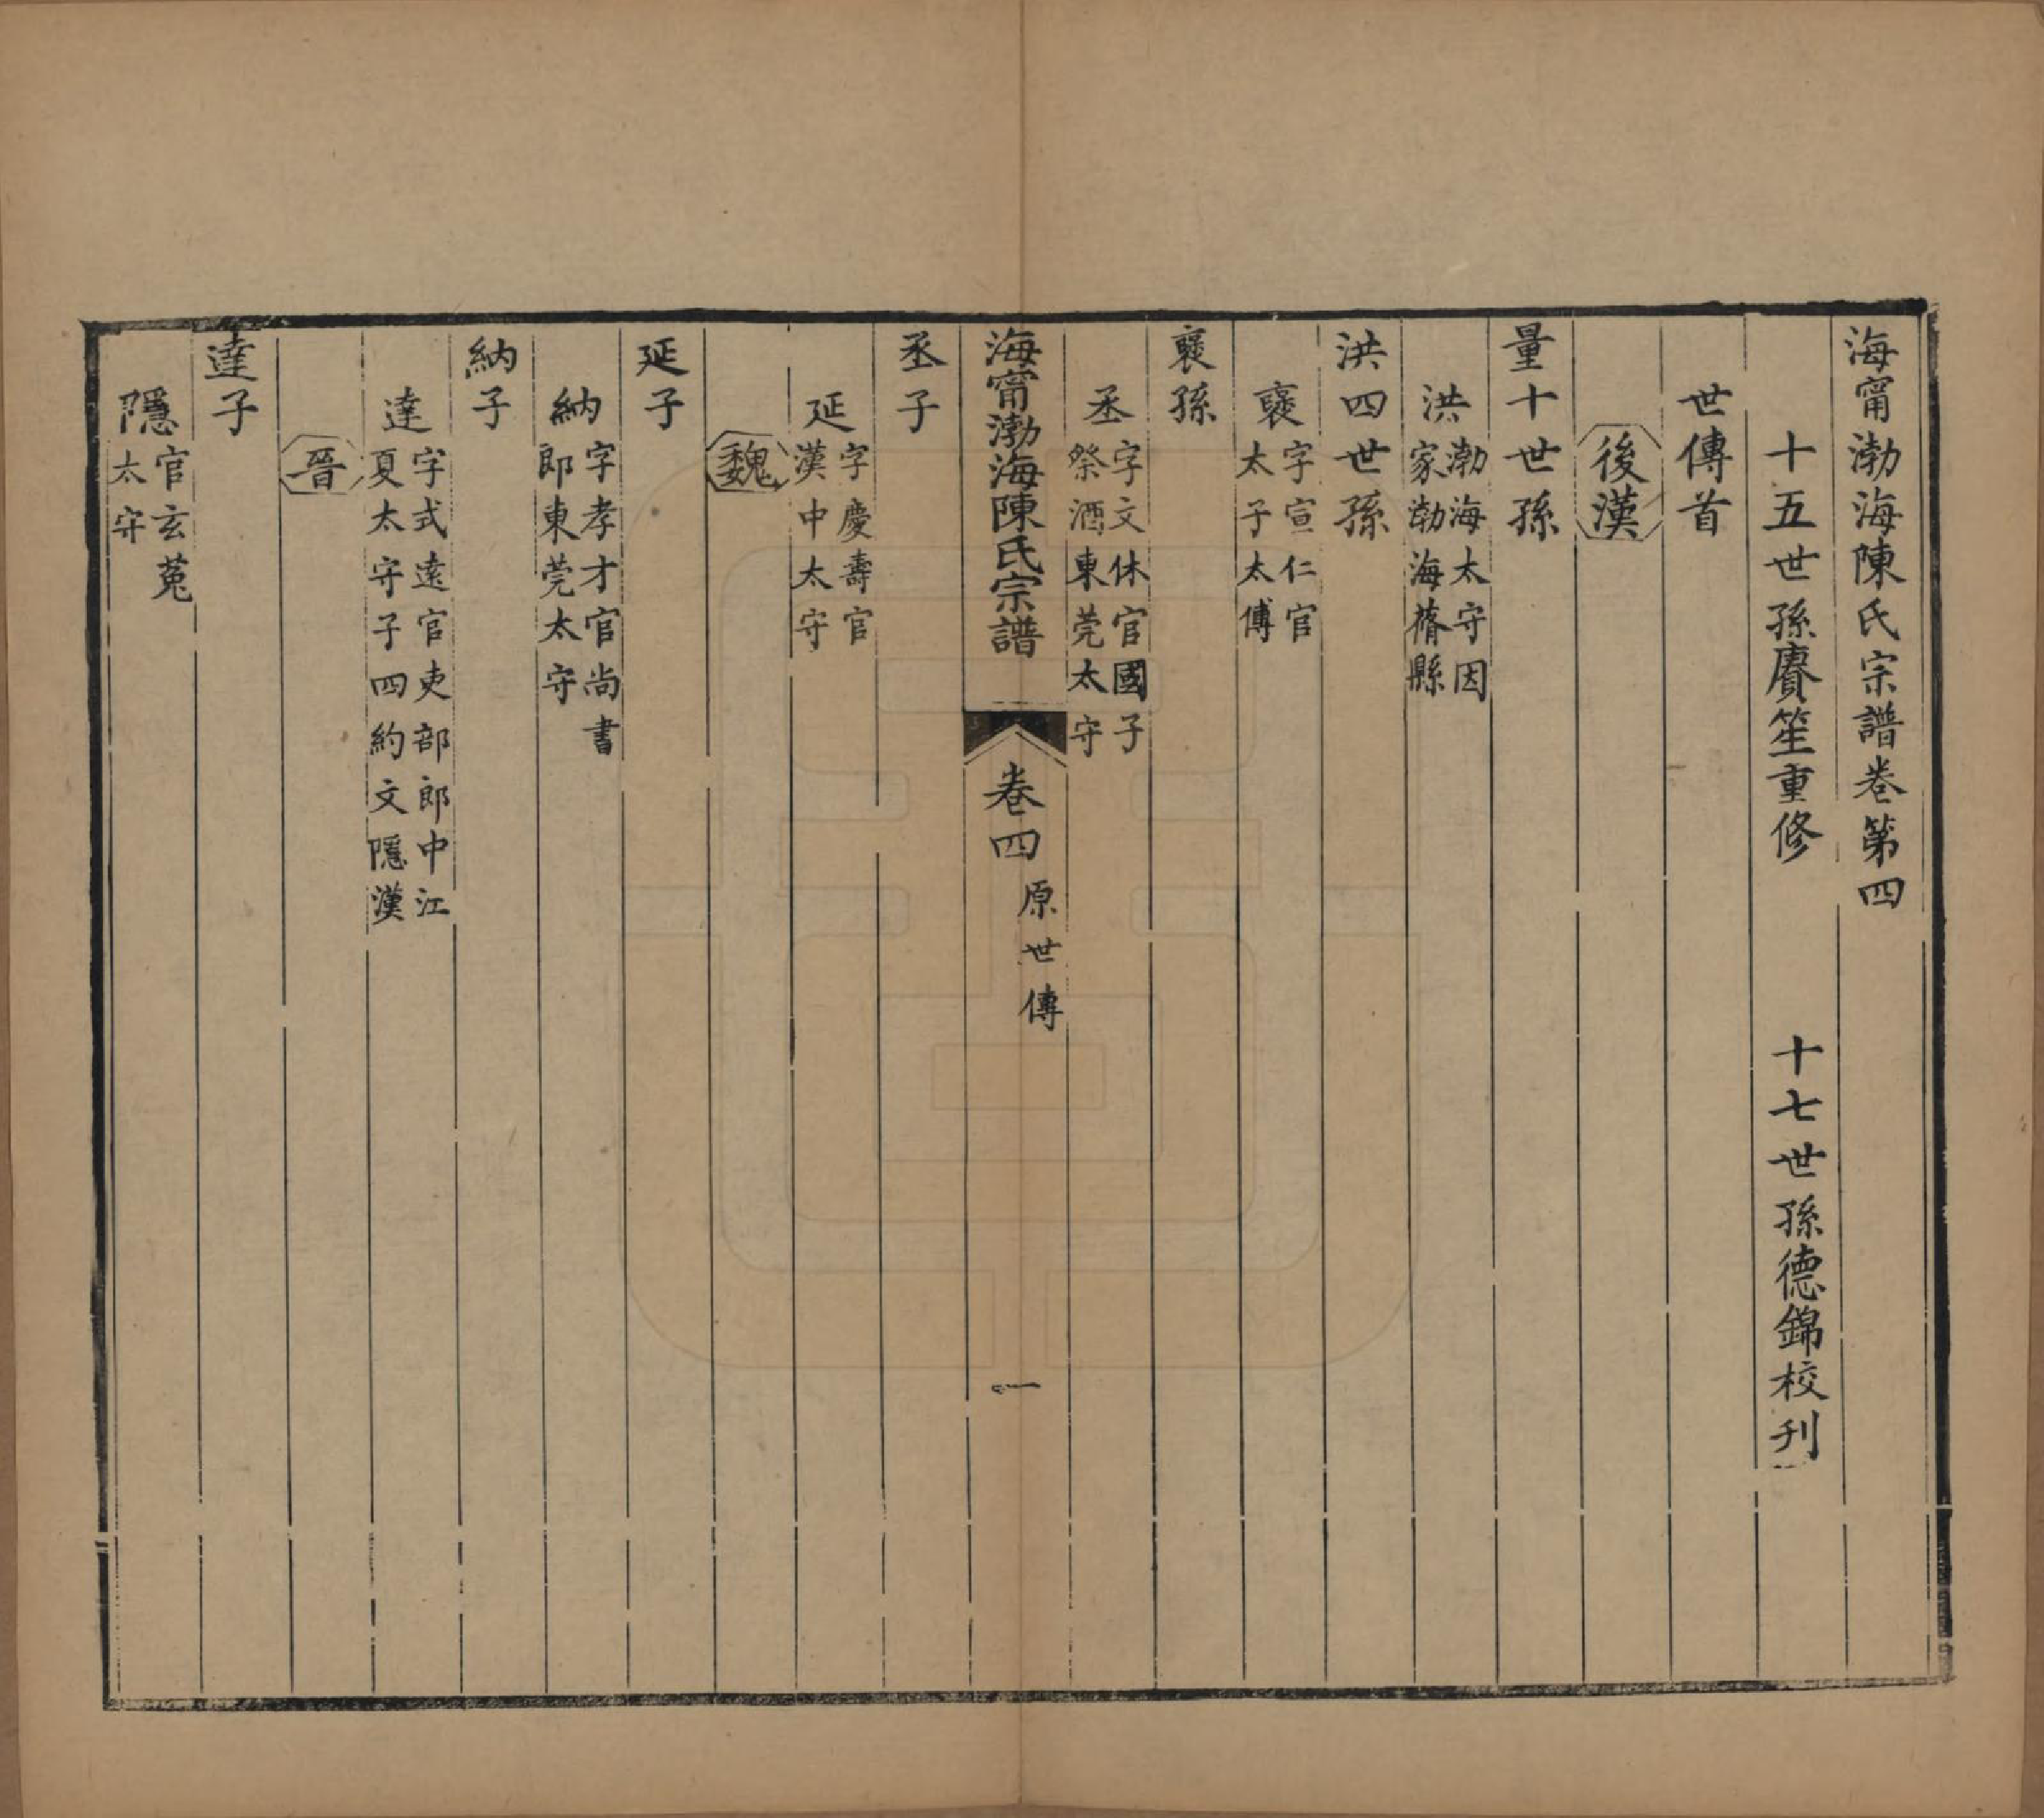 海甯渤海陳氏宗譜卷第四
十五世孫賡笙重修　十七世孫德錦校刊
世傳首
後漢
量十世孫
洪 渤海太守因家渤海蓨縣
洪四世孫
襃 字宣仁官太子太傅
襃孫
丞 字文休官國子祭酒東莞太守
海甯渤海陳氏宗譜　卷四　原世傳　一
丞子
延 字慶壽官漢中太守
魏
延子
納 字孝才官尚書郎東莞太守
納子
逹 字式遠官吏部郎中江夏太守子四約文隱漢
晉
逹子
隱 官玄菟太守